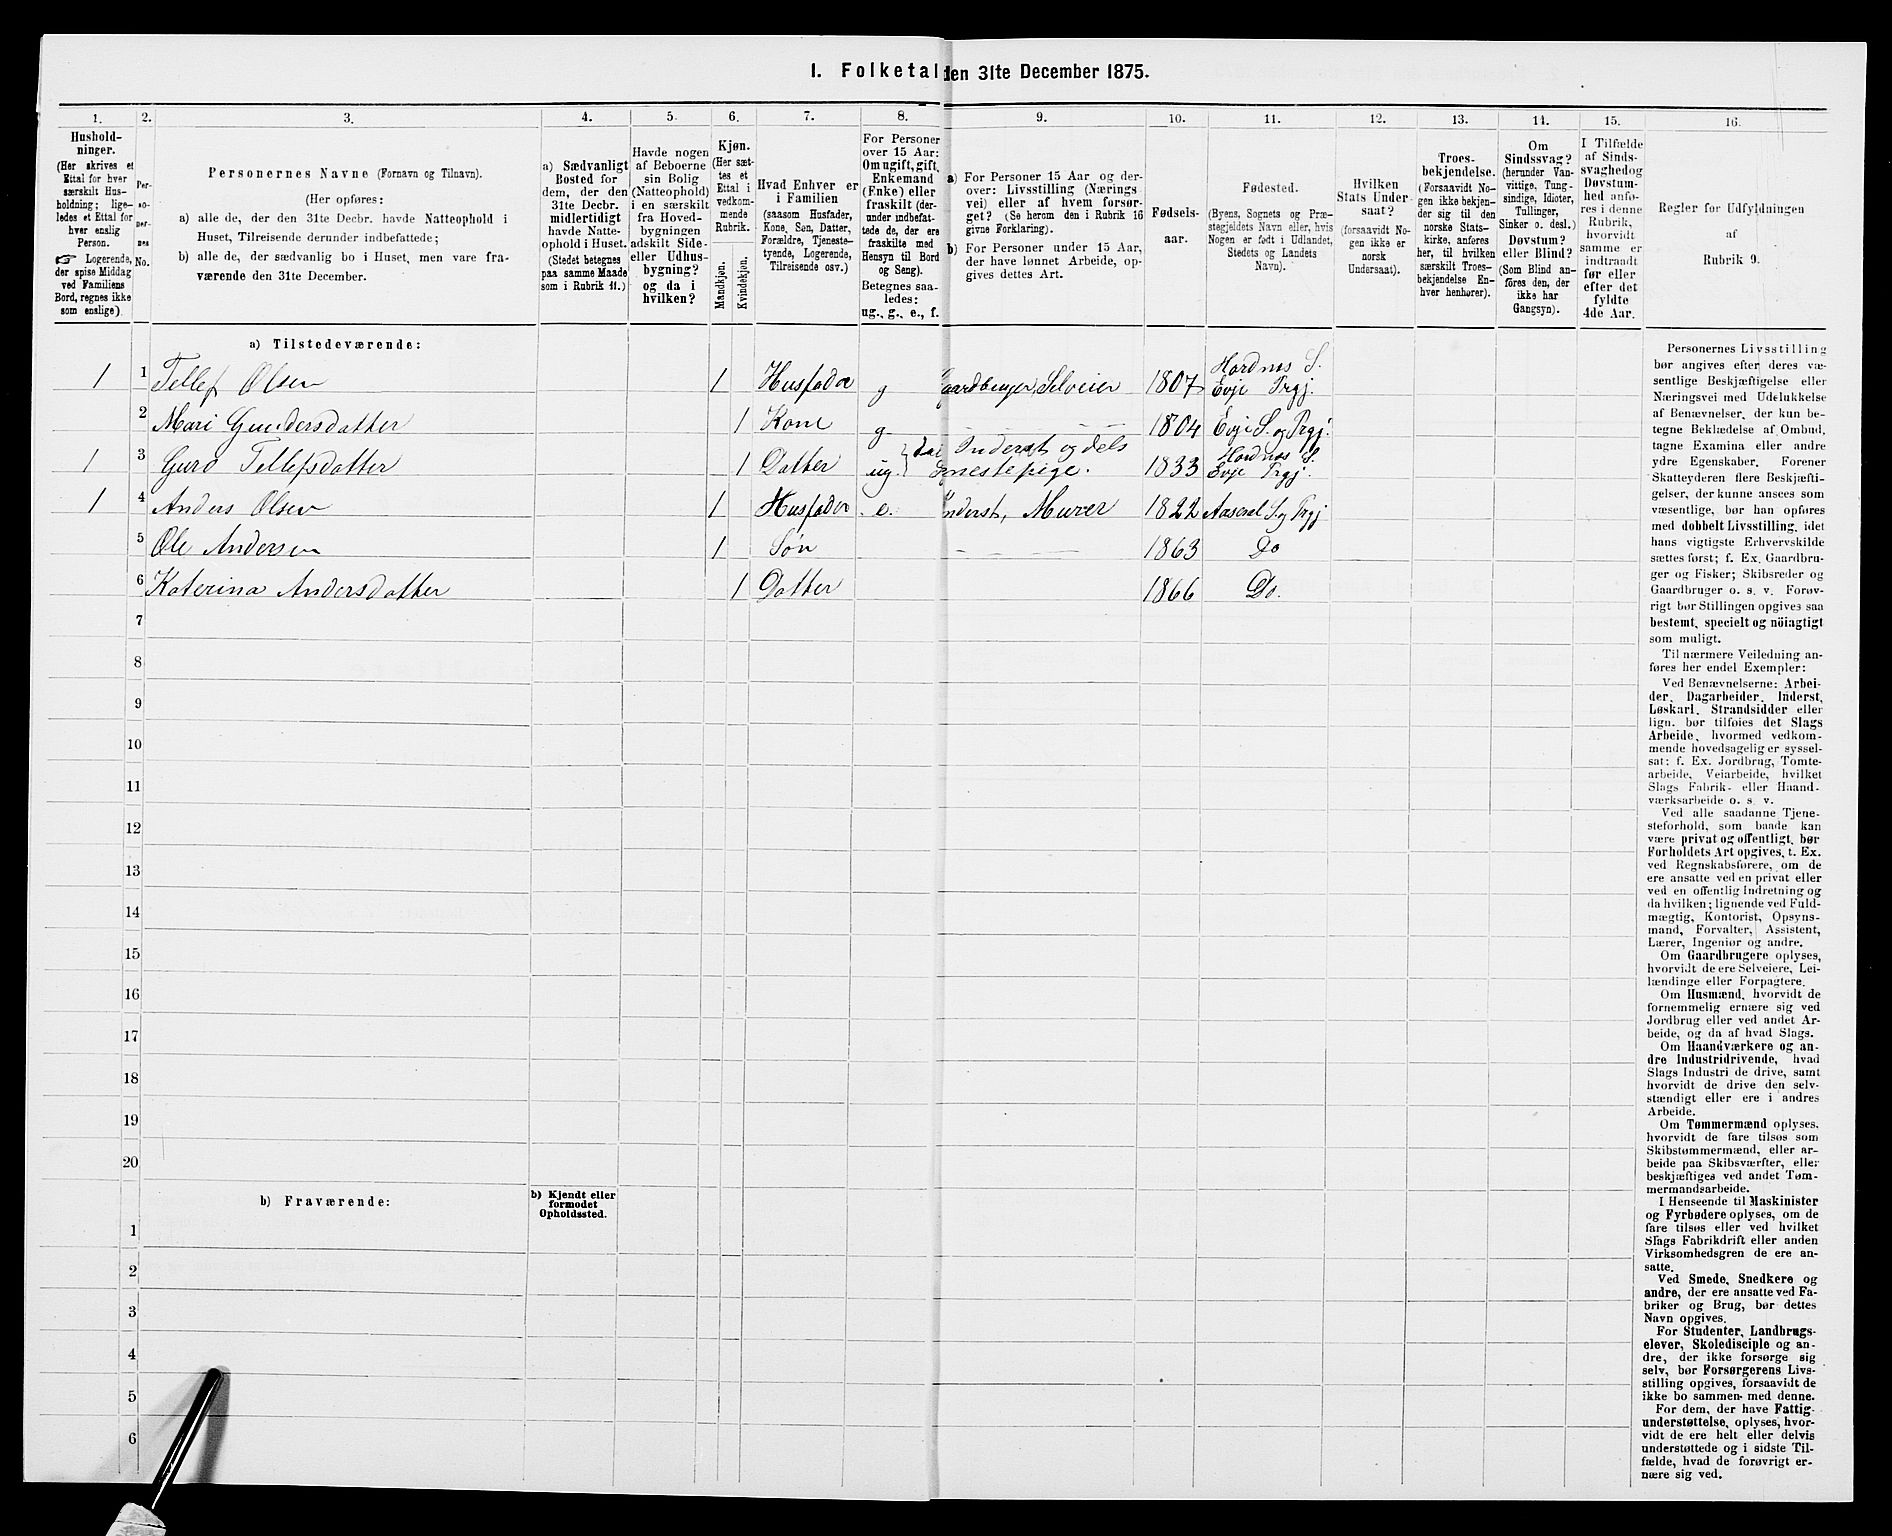 I. Folketal den 31te December 1875.
1.
Hushold-
ninger.
(Her skrives et
Ettal for hver
særskilt Hus-
holdning; lige-
ledes et Ettal for
hver enslig
Person.
☞ Logerende,
der spise Middag
ved Familiens
Bord, regnes ikke
som enslige).
2.
Per-
so-
ner-
nes
No.
3.
Personernes Navne (Fornavn og Tilnavn).
(Her opføres:
a) alle de, der den 31te Decbr. havde Natteophold i
Huset, Tilreisende derunder indbefattede;
b) alle de, der sædvanlig bo i Huset, men vare fra-
værende den 31te December.
4.
a) Sædvanligt
Bosted for
dem, der den
31te Decbr.
midlertidigt
havde Natte-
ophold i Huset.
(Stedet betegnes
paa samme Maade
som i Rubrik 11.)
5.
Havde nogen
af Beboerne
sin Bolig
(Natteophold)
i en særskilt
fra Hoved-
bygningen
adskilt Side-
eller Udhus-
bygning?
og da i
hvilken?
6.
Kjøn.
(Her sæt-
tes et
Ettal i
vedkom-
mende
Rubrik.
Mandkjøn.
Kvindekjøn.
7.
Hvad Enhver er
i Familien
(saasom Husfader,
Kone, Søn, Datter,
Forældre, Tjeneste-
tyende, Logerende,
Tilreisende osv.)
8.
For Personer
over 15 Aar:
Om ugift, gift,
Enkemand
(Enke) eller
fraskilt (der-
under indbefat-
tede de, der ere
fraskilte med
Hensyn til Bord
og Seng).
Betegnes saa-
ledes:
ug., g., e., f.
9.
a) For Personer 15 Aar og der-
over: Livsstilling (Nærings
vei) eller af hvem forsør-
get? (Se herom den i Rubrik 16
givne Forklaring).
b) For Personer under 15 Aar,
der have lønnet Arbeide, op-
gives dettes Art.
10.
Fødsels-
aar.
11.
Fødested.
(Byens, Sognets og Præ-
stegjeldets Navn eller, hvis
Nogen er født i Udlandet,
Stedets og Landets
Navn).
12.
Hvilken
Stats Under-
saat?
(forsaavidt No-
gen ikke er
norsk
Undersaat).
13.
Troes-
bekjendelse.
(Forsaavidt No-
gen ikke bekjen-
der sig til den
norske Stats-
kirke, anføres
her, til hvilken
særskilt Troes-
bekjendelse En-
hver henhører).
14.
Om
Sindssvag?
(herunder Van-
vittige, Tung-
sindige, Idioter,
Tullinger,
Sinker o. desl.)
Døvstum?
eller Blind?
(Som Blind an-
føres den, der
ikke har
Gangsyn).
15.
I Tilfælde
af Sinds-
svaghed og
Døvstum-
hed anfø-
res i denne
Rubrik,
hvorvidt
samme er
indtraadt
før eller
efter det
fyldte
4de Aar.
16.
Regler for Udfyldningen
af
Rubrik 9.
a) Tilstedeværende:
1 1 Tellef Olsen 1 Husfader g Gaardbruger, Selveier 1807 Hordnæs S. Evje Prgj.
2 Mari Gundersdatter 1 Kone g — — — 1804 Evje S. og Prgj.
1 3 Guro Tellefsdatter 1 Datter ug. Inderst og dels Tjenestepige. 1833 Hordnæs S. Evje Prgj.
1 4 Anders Olsen 1 Husfader e. Inderst, Murer 1822 Aaseral S. og Prgj
5 Ole Andersen 1 Søn — — — 1863 Do
6 Katerina Andersdatter 1 Datter 1866 Do.
7
8
9
10
11
12
13
14
15
16
17
18
19
20
b) Fraværende:
b) Kjendt eller
formodet
Opholdssted.
1
2
3
4
5
6
Personernes Livsstilling
bør angives efter deres væ-
sentlige Beskjæftigelse eller
Næringsvei med Udelukkelse
af Benævnelser, der kun be-
tegne Beklædelse af Ombud,
tagne Examina eller andre
ydre Egenskaber. Forener
Skatteyderen flere Beskjæfti-
gelser, der kunne ansees som
væsentlige, bør han opføres
med dobbelt Livsstilling, idet
hans vigtigste Erhvervskilde
sættes først; f. Ex. Gaardbru-
ger og Fisker; Skibsreder og
Gaardbruger o. s. v. Forøv-
rigt bør Stillingen opgives saa
bestemt, specielt og nöiagtigt
som muligt.
Til nærmere Veiledning an-
føres her endel Exempler:
Ved Benævnelserne: Arbei-
der, Dagarbeider, Inderst,
Løskarl, Strandsidder eller
lign. bør tilføies det Slags
Arbeide, hvormed vedkom-
mende hovedsagelig er syssel-
sat: f. Ex. Jordbrug, Tomte-
arbeide, Veiarbeide, hvilket
Slags Fabrik- eller Haand-
værksarbeide o. s. v.
Ved alle saadanne Tjene-
steforhold, som baade kan
være privat og offentligt, bør
Forholdets Art opgives, t. Ex.
ved Regnskabsførere, om de
ere ansatte ved en privat eller
ved en offentlig Indretning og
da hvilken; lignende ved Fuld-
mægtig, Kontorist, Opsyns-
mand, Forvalter, Assistent,
Lærer, Ingeniør og andre.
Om Gaardbrugere oplyses,
hvorvidt de ere Selveiere, Lei-
lændinge eller Forpagtere.
Om Husmænd, hvorvidt de
fornemmelig ernære sig ved
Jordbrug eller ved andet Ar-
beide, og da af hvad Slags.
Om Haandværkere og an-
dre Industridrivende, hvad
Slags Industri de drive, samt
hvorvidt de drive den selv-
stændigt eller ere i andres
Arbeide.
Om Tømmermænd oplyses,
hvorvidt de fare tilsøs som
Skibstømmermænd, eller ar-
beide paa Skibsværfter, eller
beskjæftiges ved andet Tøm-
mermandsarbeide.
I Henseende til Maskinister
og Fyrbødere oplyses, om de
fare tilsøs eller ved hvilket
Slags Fabrikdrift eller anden
Virksomhedsgren de ere an-
satte.
Ved Smede, Snedkere og
andre, der ere ansatte ved Fa-
briker og Brug, bør dettes
Navn opgives.
For Studenter, Landbrugs-
elever, Skoledisciple og an-
dre, der ikke forsørge sig
selv, bør Forsørgerens Livs-
stilling opgives, forsaavidt de
ikke bo sammen med denne.
For dem, der have Fattig
understøttelse, oplyses, hvor-
vidt de ere helt eller delvis
understøttede og i sidste Til-
fælde, hvad de forøvrigt er-
nære sig ved.